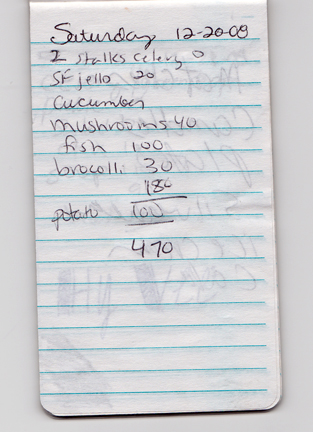 Saturday 12-20-08
2 stalks celery 0
SF jello 20
cucumber
mushrooms 40
fish 100
brocolli 30
180
potato 100
470